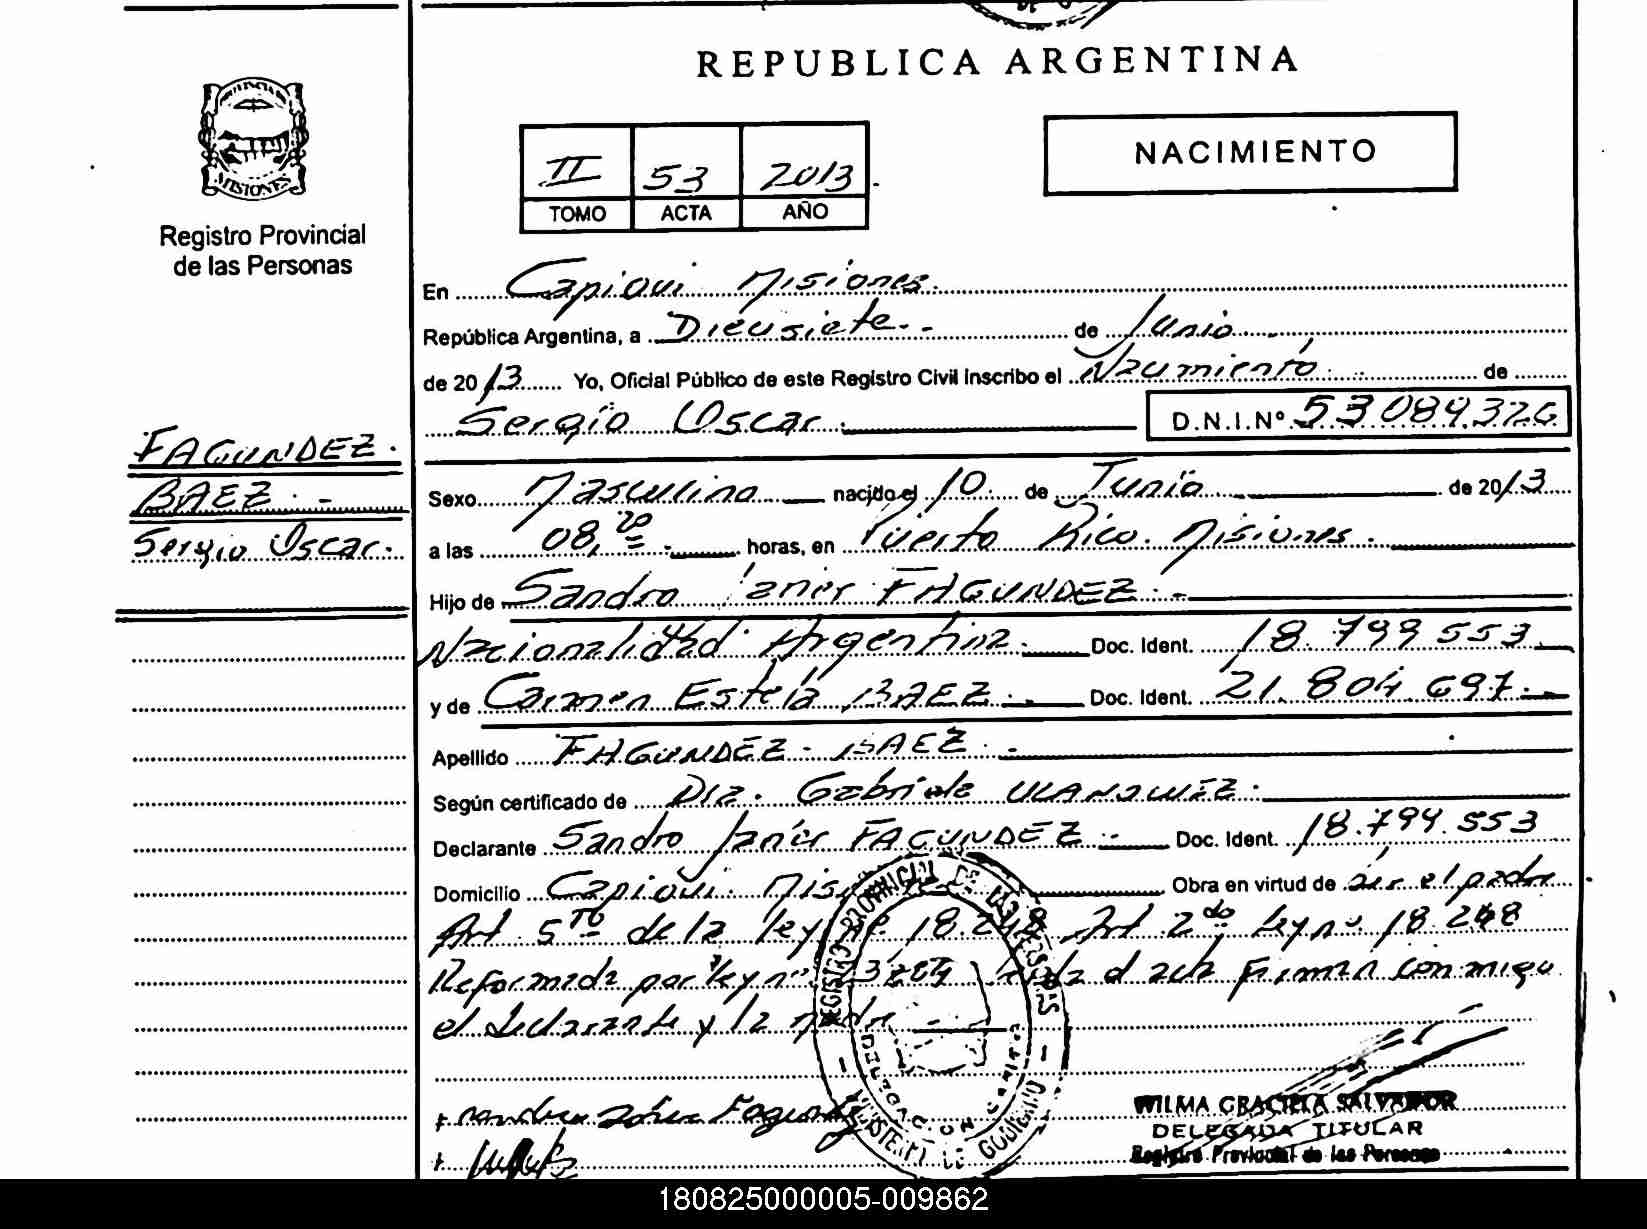 REPUBLICA ARGENTINA
MISIONES
Registro Provincial
de las Personas
II 53 2013
TOMO ACTA AÑO
NACIMIENTO
FAGUNDEZ
BAEZ
Sergio Oscar
En Capiovi Misiones
República Argentina, a Diecisiete de Junio
de 2013 Yo, Oficial Público de este Registro Civil Inscribo el Nacimiento de
Sergio Oscar D.N.I.Nº 53.084.326
Sexo Masculino nacido el 10 de Junio de 2013
a las 08,20 horas, en Puerto Rico Misiones
Hijo de Sandro Janer FAGUNDEZ
Nacionalidad Argentina Doc. Ident.
y de Carmen Estela BAEZ Doc. Ident. 21.804.697
Apellido FAGUNDEZ BAEZ
Según certificado de Dra. Gabriela
Declarante Sandro Janer FAGUNDEZ Doc. Ident. 18.794.553
Domicilio Capiovi Misiones Obra en virtud de ser el padre
Art 5to de la ley nº 18.248 Art 2do Ley nº 18.248
Reformada por ley nº Leida el acta Firman conmigo
el declarante y la madre
REGISTRO PROVINCIAL DE LAS PERSONAS
MINISTERIO DE GOBIERNO
Fagundez
WILMA GRACIELA SALVADOR
DELEGADA TITULAR
Registro Provincial de las Personas
180825000005-009862